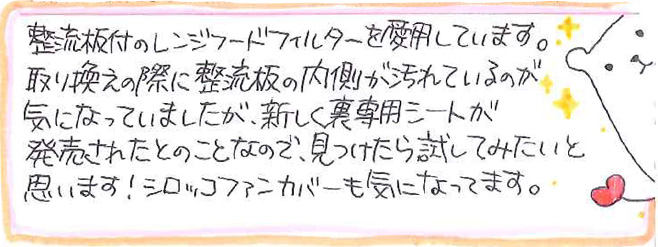 整流板付のレンジフードフィルターを愛用しています。
取り換えの際に整流板の内側が汚れているのが
気になっていましたが、新しく裏専用シートが
発売されたとのことなので、見つけたら試してみたいと
思います！シロッコファンカバーも気になってます。